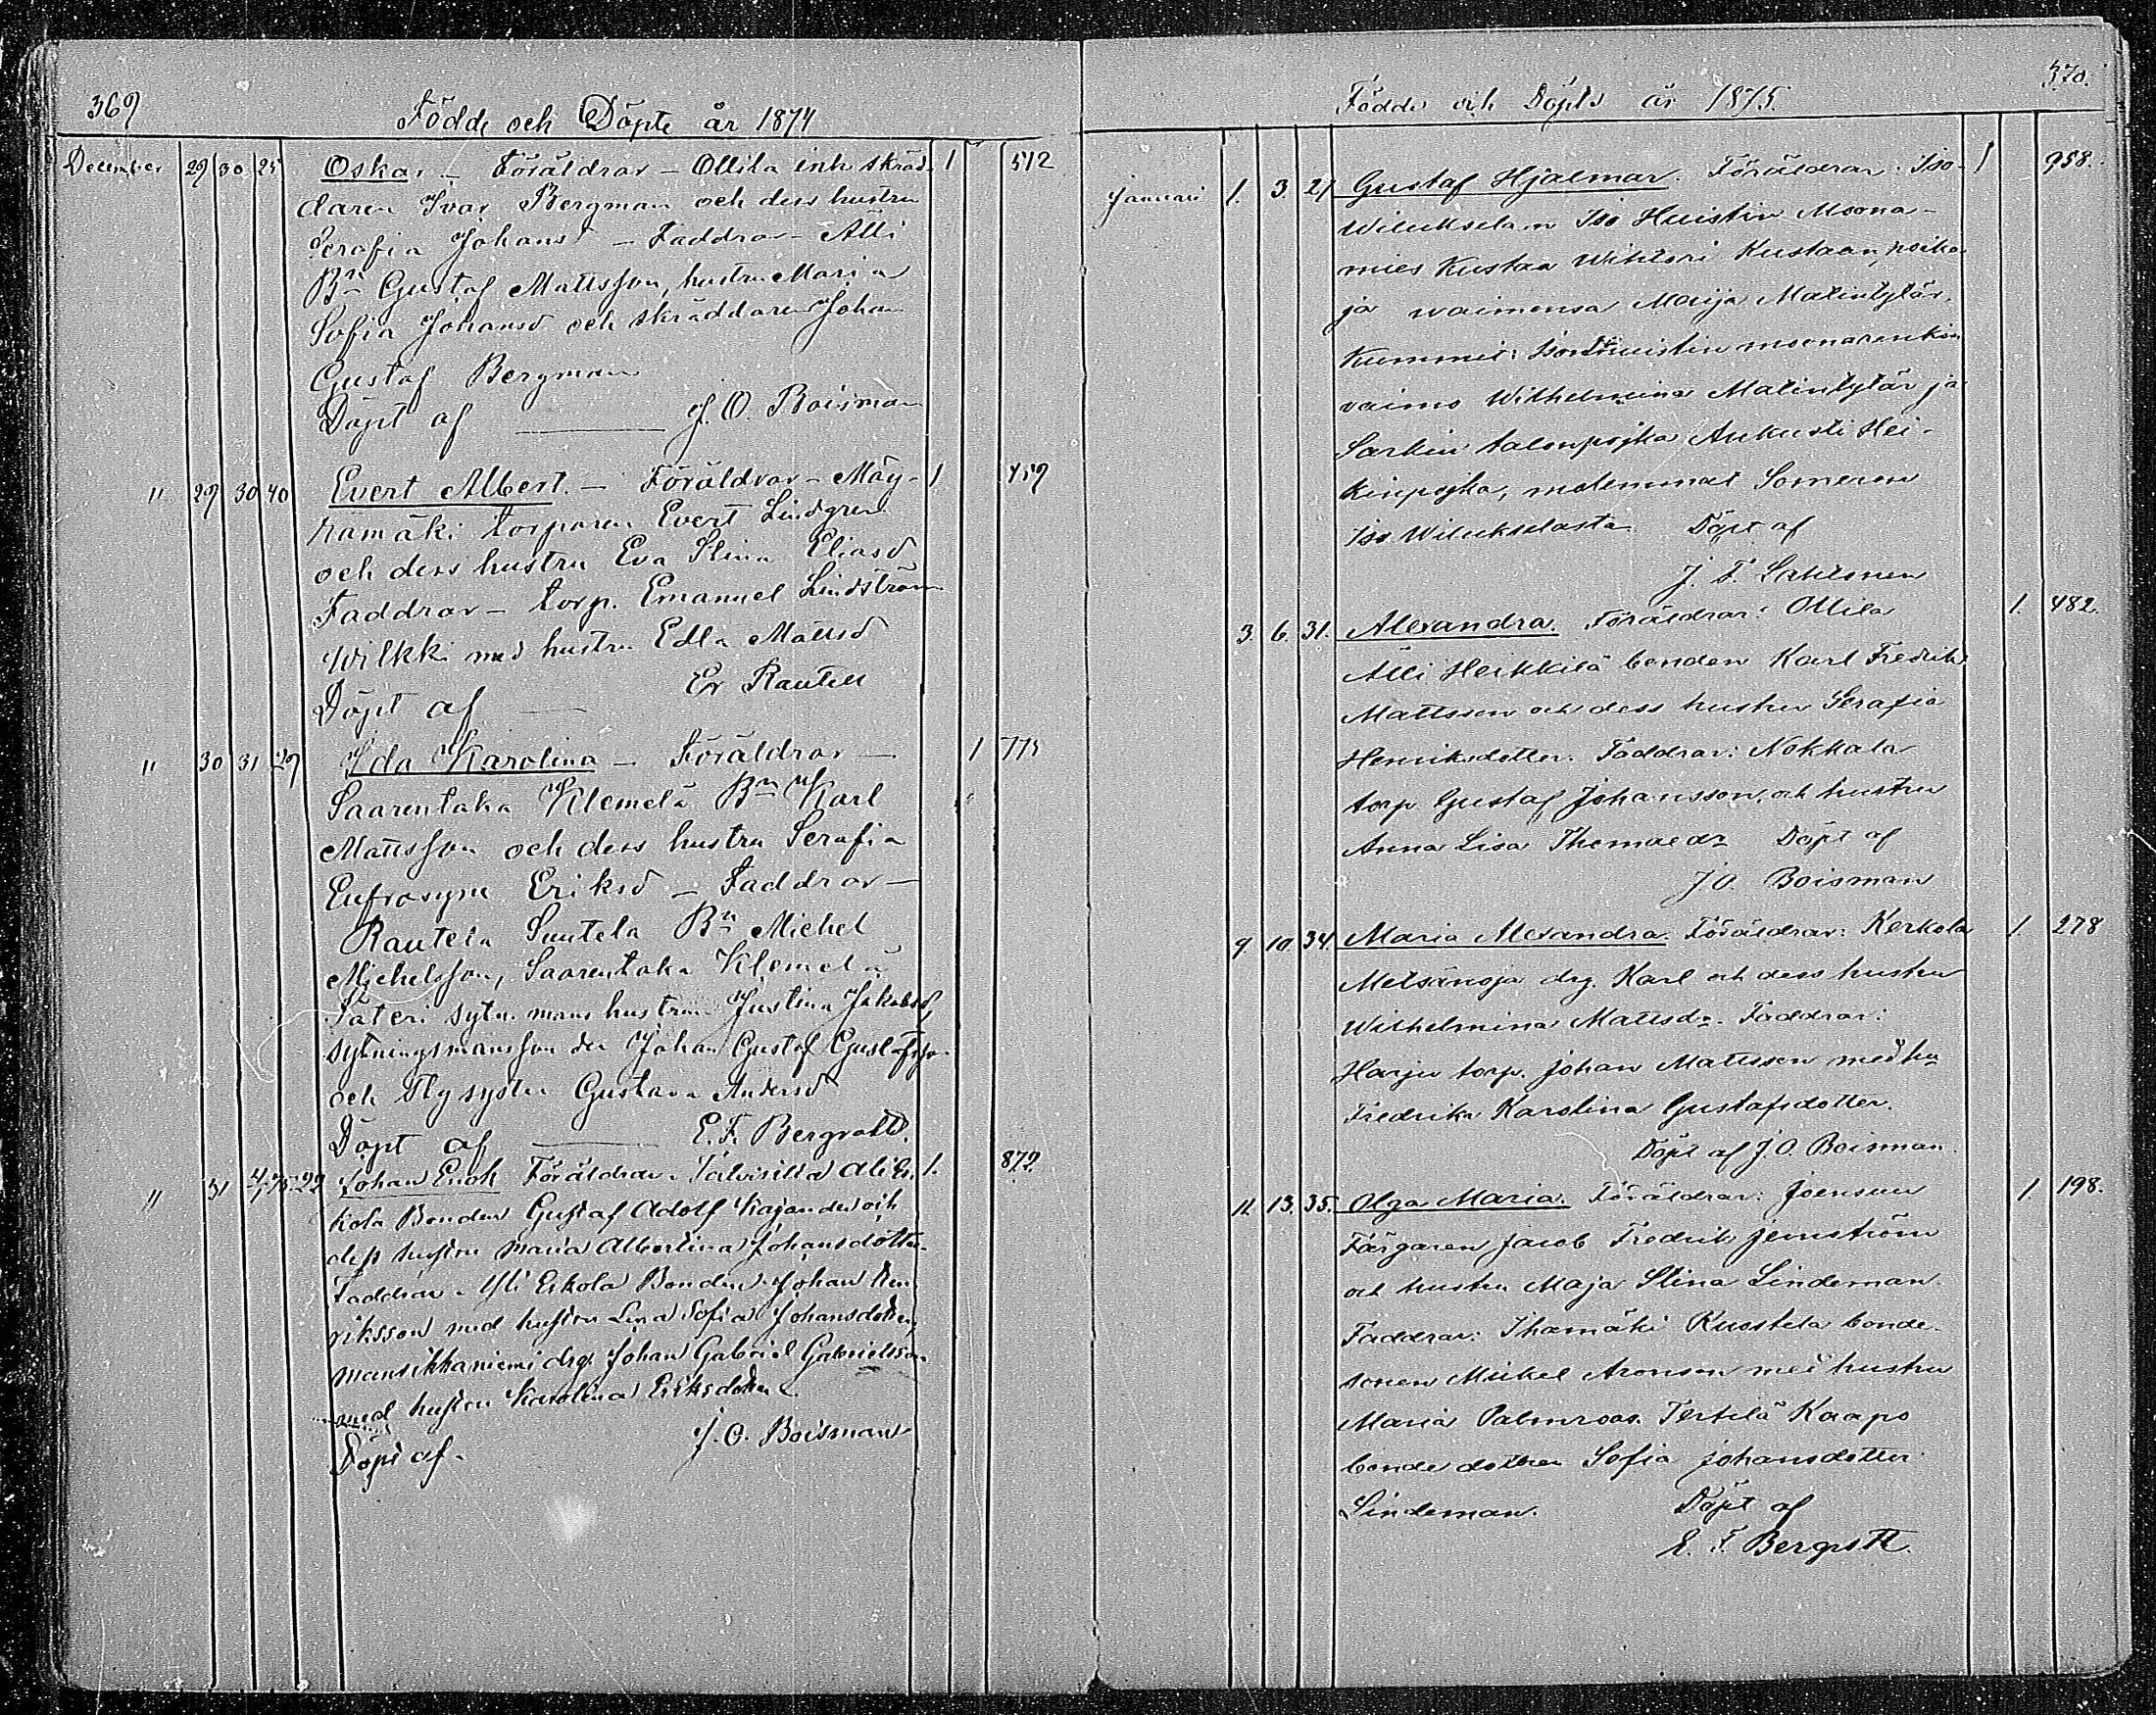 369
Födde och Döpte år 1874
December 29 30 25 Oskar – Föräldrar – Ollila inh. skräd- 1 512
daren Ivar Bergman och dess hustru
Serafia Johansd – Faddrar – Alli
Bn Gustaf Mattsson, hustru Maria
Sofia Johansd och skräddaren Johan
Gustaf Bergman
Döpt af — J. O. Boisman
" 29 30 40 Evert Albert. – Föräldrar – Mäy- 1 459
rämäki torparen Evert Lindgren
och dess hustru Eva Stina Eliasd
Faddrar – torp. Emanuel Lindström
Wilkki med hustru Edla Mattsd
Döpt af — Er Rautell
" 30 31 29 Ida Karolina – Föräldrar – 1 775
Saarentaka Klemelä Bn Karl
Mattsson och dess hustru Serafia
Eufrosyne Eriksd – Faddrar –
Rautela Suutela Bn Michel
Michelsson, Saarentaka Klemelä
Säteri sytn. mans hustru Justina Jakobsd,
sytningsmanssonen Johan Gustaf Gustafsson
och Gustava Andersd
Döpt af — E. F. Bergroth.
" 31 4/1 75. 22 Johan Enok Föräldrar. Talvisilla Ali Er- 1. 872
kola Bonden Gustaf Adolf Kajander och
dess hustru Maria Albertina Johansdotter.
Faddrar. Yli Erkola Bonden Johan Hen
riksson med hustru Lena Sofia Johansdotter,
Mansikkaniemi drg. Johan Gabriel Gabrielsson
med hustru Karolina Eriksdotter.
Döpt af. J. O. Boisman
370.
Födde och Döpte år 1875.
Januari 1. 3. 27 Gustaf Hjalmar. Föräldrar: Iso- 1 958.
Wiluksela'n Iso Huistin Moona-
mies Kustaa Wihtori Kustaan poika
ja waimonsa Maija Matintytär,
Kummit: Isonhuistin moonarenkin
vaimo Wilhelmiina Matintytär ja
Sarkin talonpojka Aukusti Hei-
kinpojka, molemmat Someron
Iso Wilukselasta. Döpt af
J. F. Sahlonen
3. 6. 31. Alexandra. Föräldrar: Ollila 1. 482.
Alli Heikkilä bonden Karl Fredrik
Mattsson och dess hustru Serafia
Henriksdotter. Faddrar: Nokkala
torp Gustaf Johansson, och hustru
Anna Lisa Thomaedr Döpt af
J O. Boisman
9 10. 34. Maria Alexandra. Föräldrar: Kerkola 1. 278
Metsänoja drg. Karl och dess hustru
Wilhelmina Mattsdr. Faddrar:
Harju torp. Johan Mattsson med hu
Fredrika Karolina Gustafsdotter.
Döpt af J. O. Boisman.
11. 13. 35. Olga Maria. Föräldrar: Joensuu 1. 198.
Färgaren Jacob Fredrik Jernström
och hustru Maja Stina Lindeman.
Faddrar: Ihamäki Ruostela bonde-
sonen Mickel Aronson med hustru
Maria Palmroos. Terttilä Kaapo
bonde dotter Sofia Johansdotter
Lindeman. Döpt af
E. F. Bergroth.